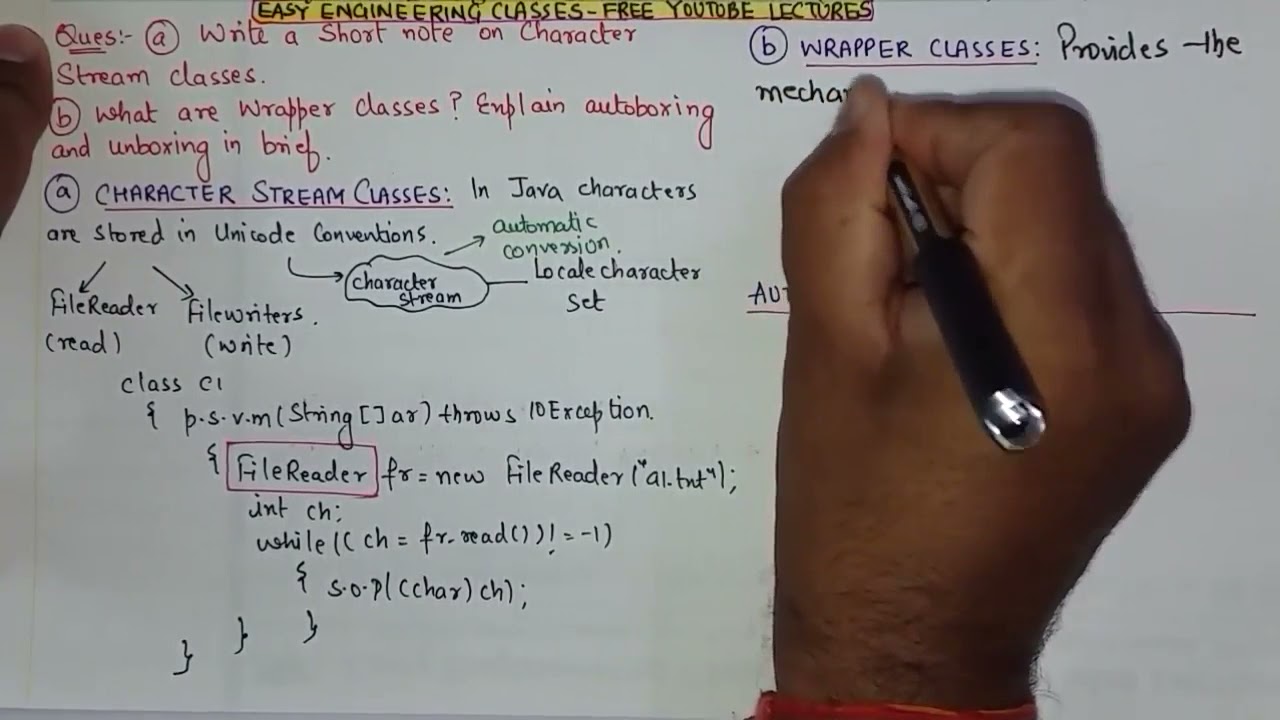 EASY ENGINEERING CLASSES-FREE YOUTUBE LECTURES
Ques:- (a) Write a Short note on Character
Stream classes.
(b) What are Wrapper classes? Explain autoboxing
and unboxing in brief.
(a) CHARACTER STREAM CLASSES: In Java characters
are stored in Unicode Conventions.
automatic
conversion.
character
stream
Locale character
Set
FileReader
(read)
Filewriters.
(write)
class C1
{ p.s.v.m(String[]ar) throws IOException.
{ FileReader fr = new FileReader("a1.txt");
int ch;
while(( ch = fr.read())!=-1)
{ s.o.p((char) ch);
}
}
}
(b) WRAPPER CLASSES: Provides the